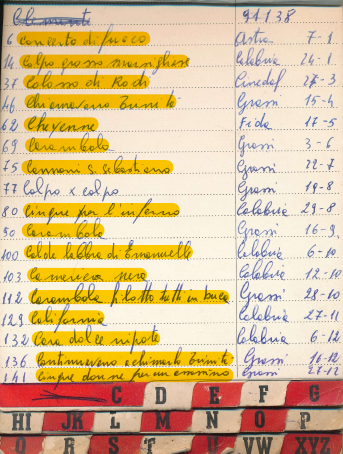 91138
6 Concerto di fuoco Astra 7-1
14 Colpo grosso marsigliese Calabria 24-1
37 Colosso di Rodi Cinedal 27-3
46 Chiamavano Trinità Grassi 15-4
62 Cheyenne Fida 17-5
69 Carambola Grassi 3-6
75 Cannoni S. Sebastiano Grassi 22-7
77 Colpo x colpo Grassi 19-8
80 Cinque per l'inferno Calabria 29-8
50 Carambola Grassi 16-9
100 Calde labbra di Emanuelle Calabria 6-10
103 Cameriera nera Calabria 12-10
112 Carambola filotto tutti in buca Grassi 28-10
129 California Calabria 27-11
132 Cara dolce nipote Calabria 6-12
136 Continuavano a chiamarlo Trinità Grassi 16-12
141 Cinque donne per un assassino Grassi 27-12
C D E F G
HI JK L M N O P
Q R S T U VW XYZ